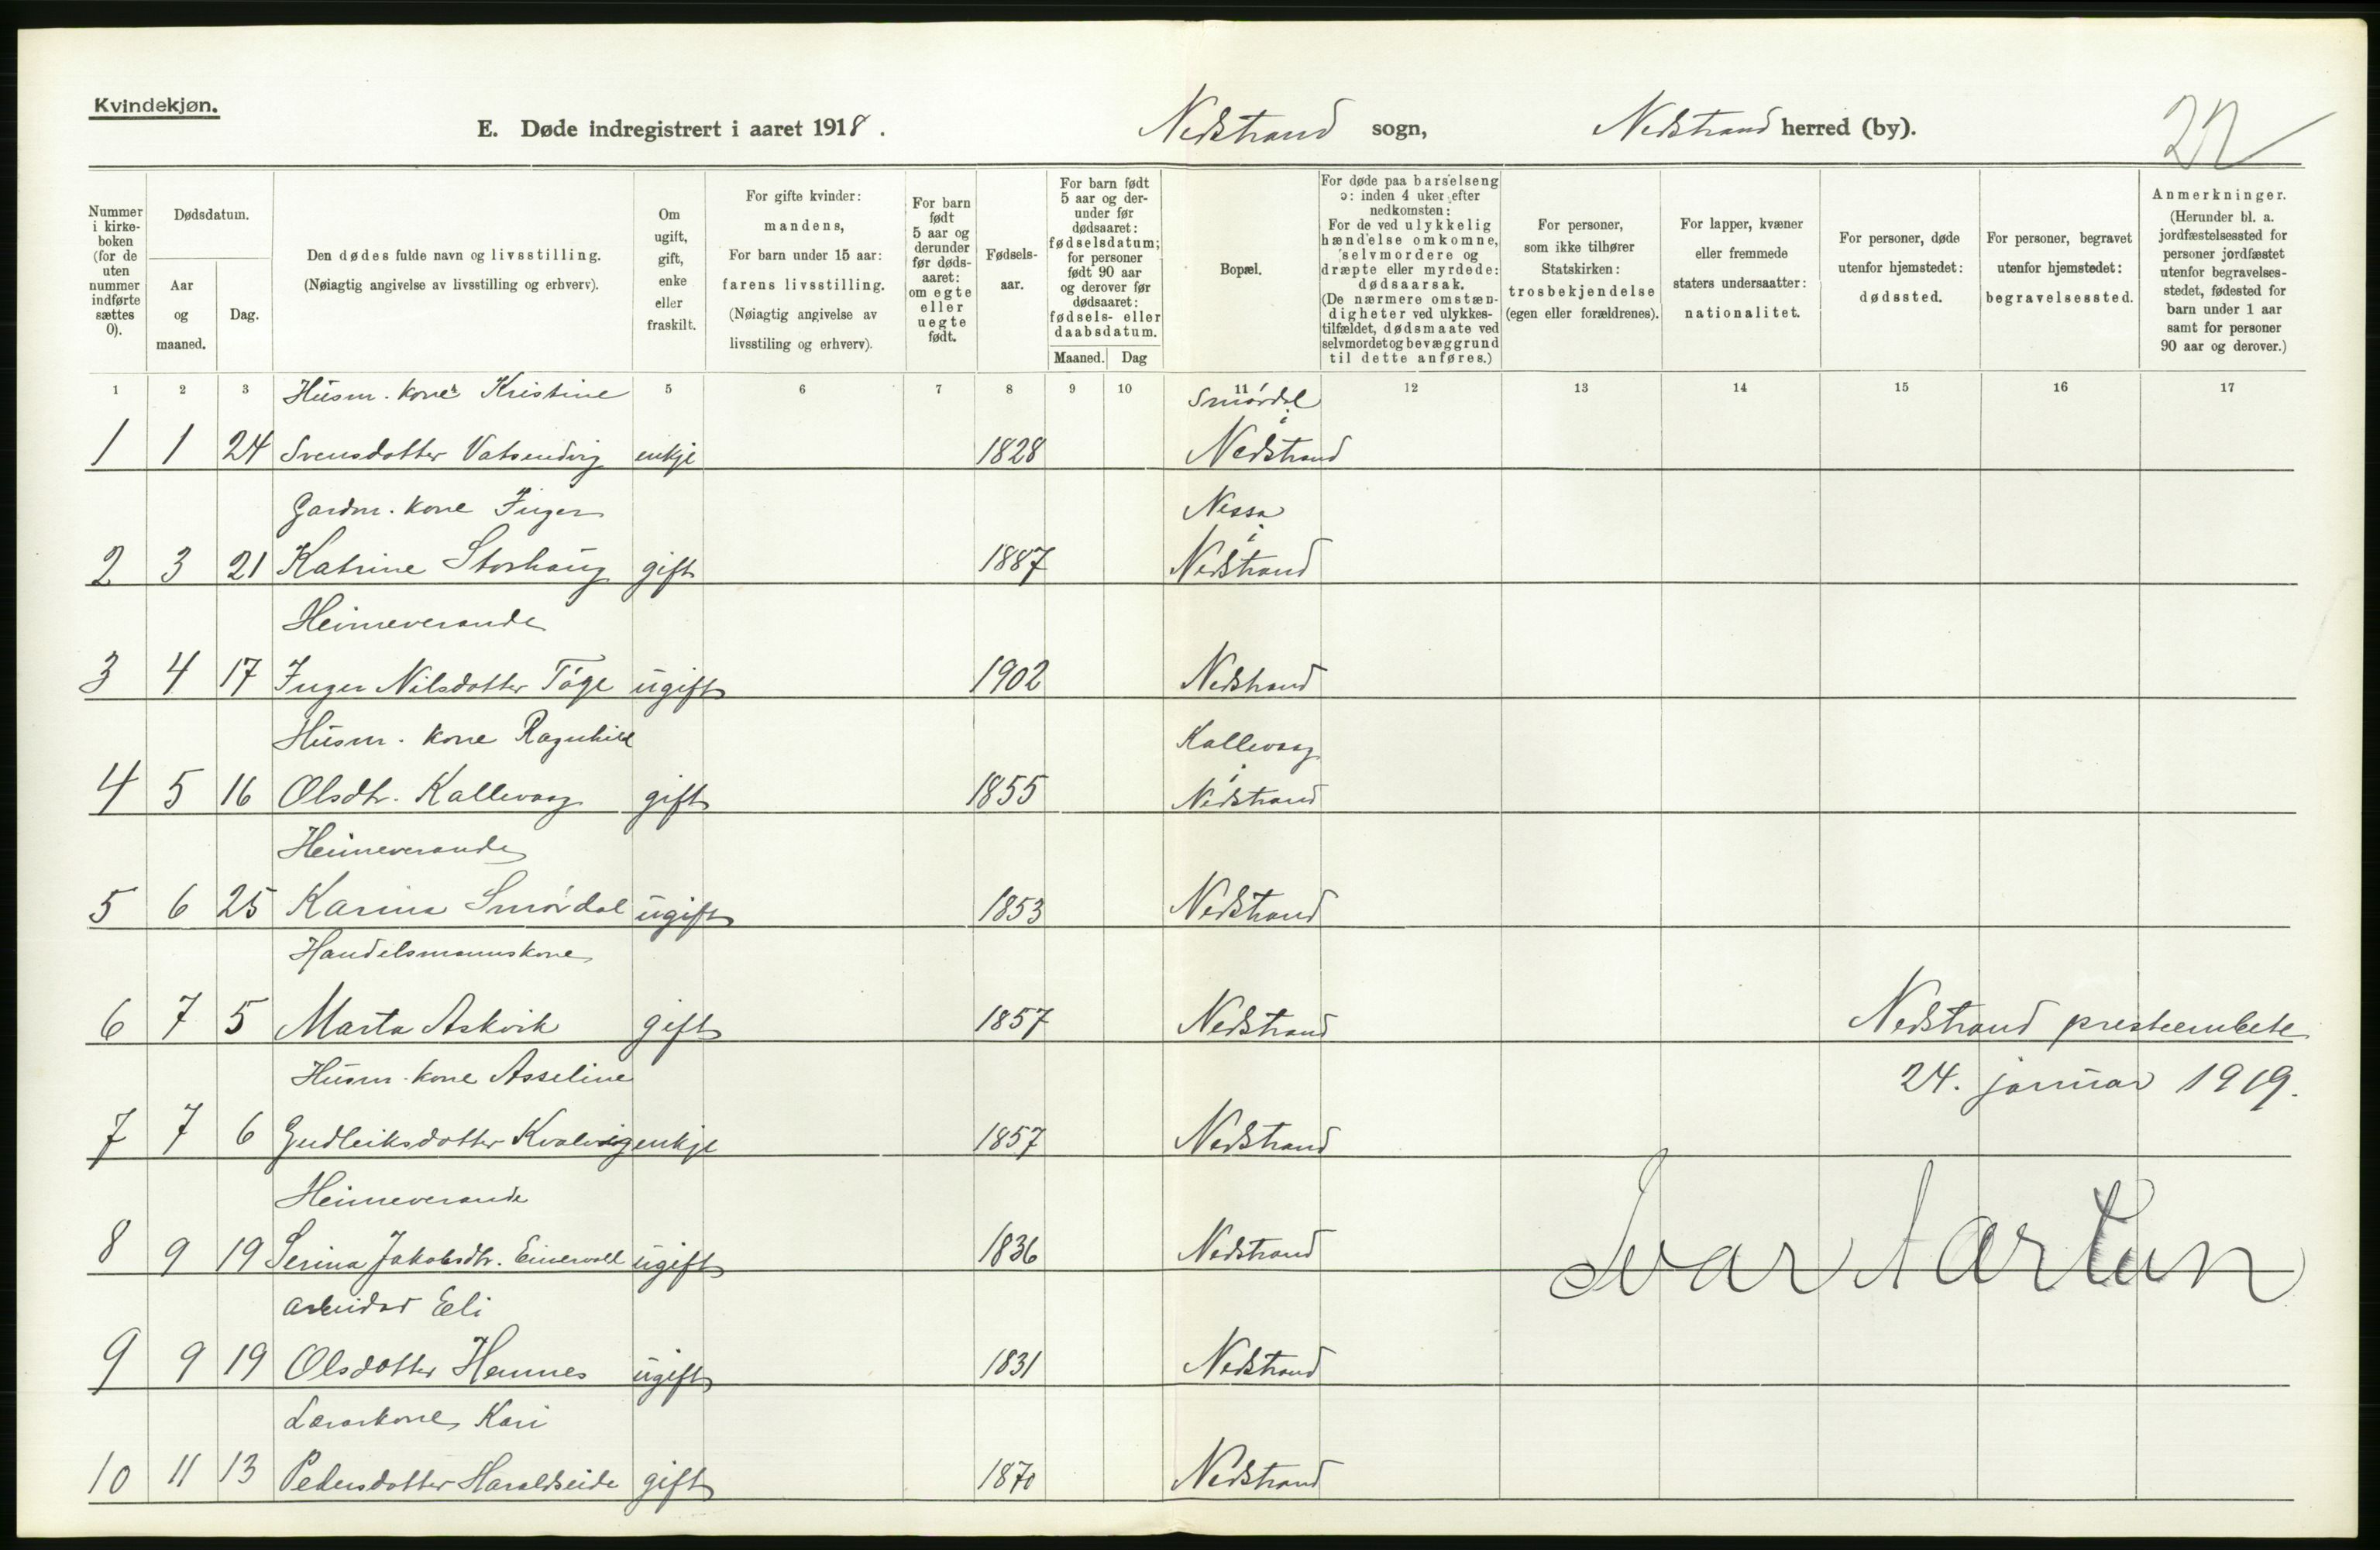 Kvindekjøn.
E. Døde indregistrert i aaret 1918. Nedstrand sogn, Nedstrand herred (by). 22
Nummer i kirke-boken (for de uten nummer indførte sættes 0).
Dødsdatum.
Aar og maaned.
Dag.
Den dødes fulde navn og livsstilling.
(Nøiagtig angivelse av livsstilling og erhverv).
Om ugift, gift, enke eller fraskilt.
For gifte kvinder: mandens,
For barn under 15 aar: farens livsstilling.
(Nøiagtig angivelse av livsstiling og erhverv).
For barn født 5 aar og derunder før døds-aaret: om egte eller uegte født.
Fødsels-aar.
For barn født 5 aar og der-under før dødsaaret: fødselsdatum; for personer født 90 aar og derover før dødsaaret: fødsels- eller daabsdatum.
Maaned. Dag
Bopæl.
For døde paa barselseng ɔ: inden 4 uker efter nedkomsten:
For de ved ulykkelig hændelse omkomne, selvmordere og dræpte eller myrdede: dødsaarsak.
(De nærmere omstæn-digheter ved ulykkes-tilfældet, dødsmaate ved selvmordet og bevæggrund til dette anføres.)
For personer, som ikke tilhører Statskirken: trosbekjendelse (egen eller forældrenes).
For lapper, kvæner eller fremmede staters undersaatter: nationalitet.
For personer, døde utenfor hjemstedet: dødssted.
For personer, begravet utenfor hjemstedet: begravelsessted.
Anmerkninger.
(Herunder bl. a. jordfæstelsessted for personer jordfæstet utenfor begravelses-stedet, fødested for barn under 1 aar samt for personer 90 aar og derover.)
1 2 3 5 6 7 8 9 10 11 12 13 14 15 16 17
Husm. kone Kristine Smördal i
1 1 24 Svensdotter Vatsendvig enkje 1828 Nedstrand
Gardm. kone Inger Nessa i
2 3 21 Katrine Storhaug gift 1887 Nedstrand
Heimeverande
3 4 17 Inger Nilsdotter Töge ugift 1902 Nedstrand
Husm. kone Ragnhild Kallevaag i
4 5 16 Olsdtr. Kallevaag gift 1855 Nedstrand
Heimeverande
5 6 25 Karina Smördal ugift 1853 Nedstrand
Handelsmannskone
6 7 5 Marta Askvik gift 1857 Nedstrand Nedstrand presteembete
Husm. kone Asseline 24. januar 1919.
7 7 6 Gudleiksdotter Kvalvig enkje 1857 Nedstrand
Heimeverande
8 9 19 Serina Jakobsdtr. Einervoll ugift 1836 Nedstrand Ivar Aartun
Arbeidar Eli
9 9 19 Olsdotter Hemnes ugift 1831 Nedstrand
Lærarkone Kari
10 11 13 Pedersdotter Haraldseide gift 1870 Nedstrand